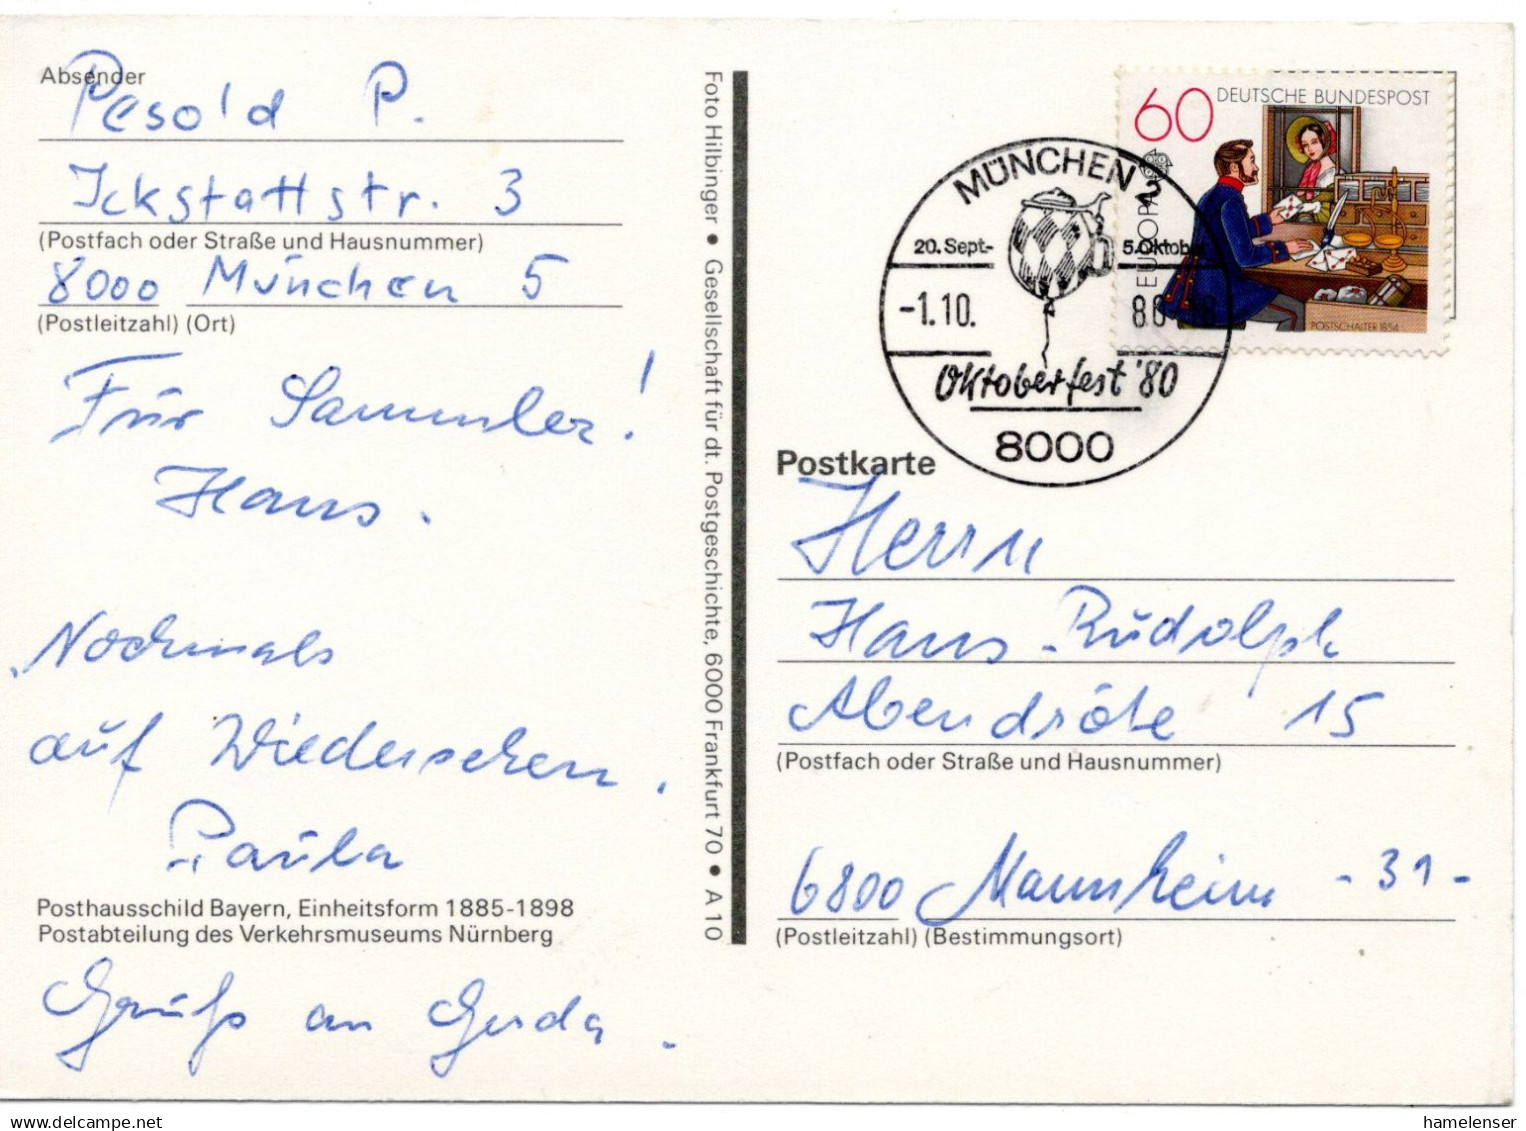 Absender
Pesold P.
Ickstattstr. 3
(Postfach oder Straße und Hausnummer)
8000 München 5
(Postleitzahl) (Ort)
Für Sammler!
Hans.
Nochmals
auf Wiedersehen.
Paula
Posthausschild Bayern, Einheitsform 1885-1898
Postabteilung des Verkehrsmuseums Nürnberg
Gruß an Gerda.
Foto Hilbinger • Gesellschaft für dt. Postgeschichte, 6000 Frankfurt 70 • A 10
60 DEUTSCHE BUNDESPOST
EUROPA
POSTSCHALTER 1854
MÜNCHEN 2
20. Sept.- 5. Oktober
-1.10. 80
Oktoberfest '80
8000
Postkarte
Herrn
Hans-Rudolph
Abendröte 15
(Postfach oder Straße und Hausnummer)
6800 Mannheim -31-
(Postleitzahl) (Bestimmungsort)
hamelenser